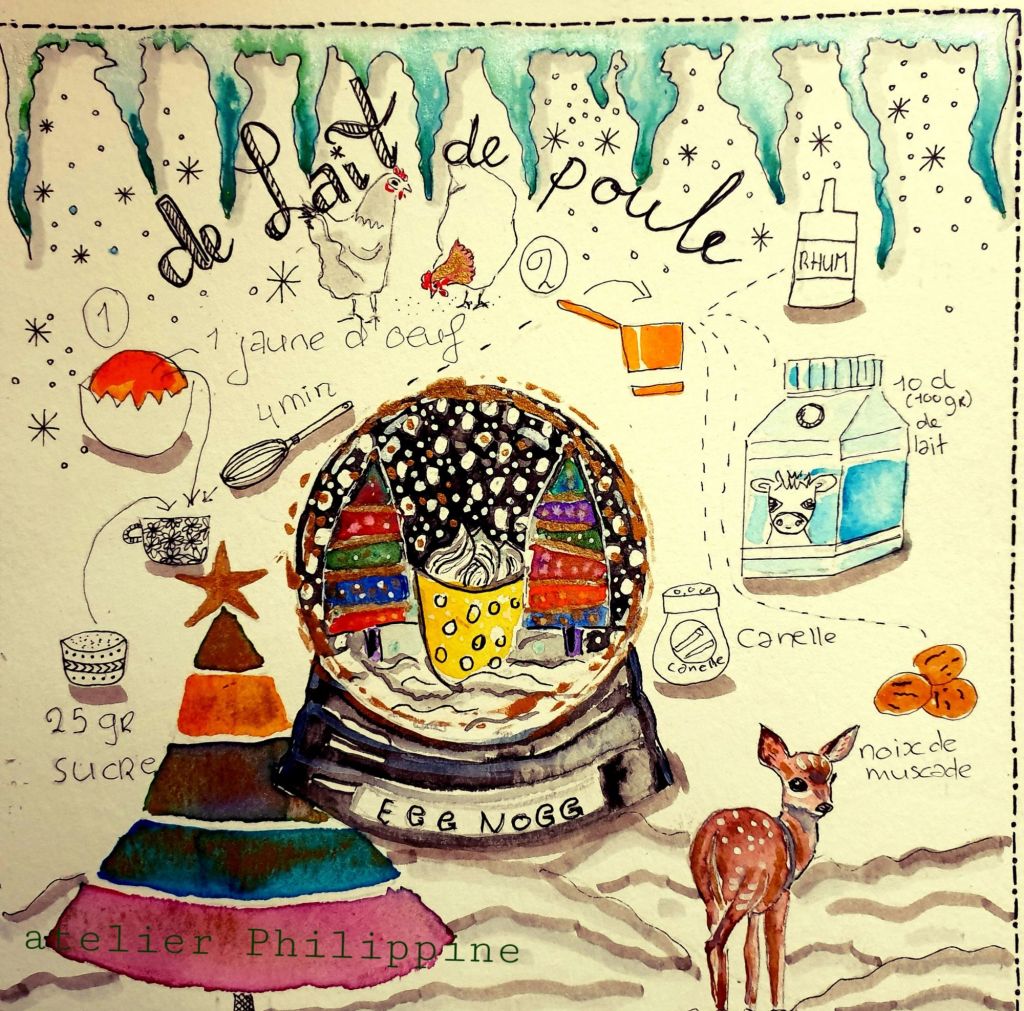 de Lait de poule
1
1 jaune d'oeuf
4 min
2
RHUM
10 cl
(100 gR)
de
lait
25 gR
SUCRE
canelle
canelle
noix de
muscade
EGG NOGG
atelier Philippine